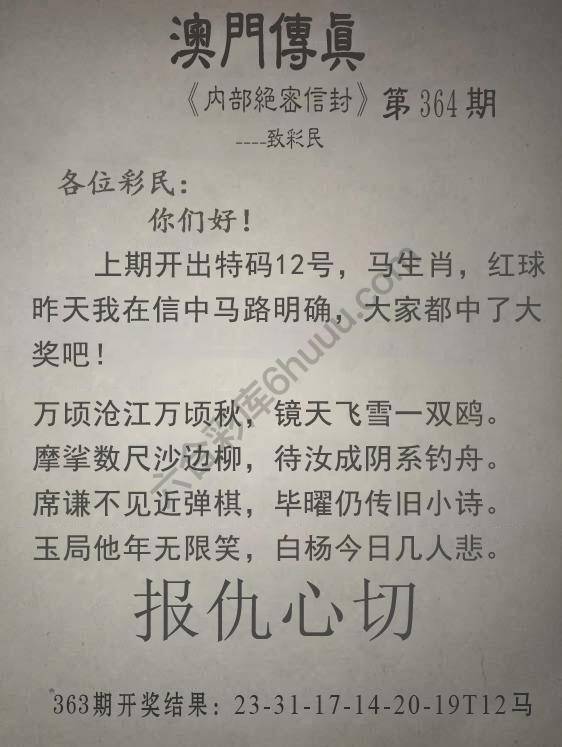 澳門傳真
《内部絕密信封》第364期
----致彩民
各位彩民：
你们好！
上期开出特码12号，马生肖，红球
昨天我在信中马路明确，大家都中了大
奖吧！
万顷沧江万顷秋，镜天飞雪一双鸥。
摩挲数尺沙边柳，待汝成阴系钓舟。
席谦不见近弹棋，毕曜仍传旧小诗。
玉局他年无限笑，白杨今日几人悲。
报仇心切
363期开奖结果：23-31-17-14-20-19T12马
六合彩库6huuu.com